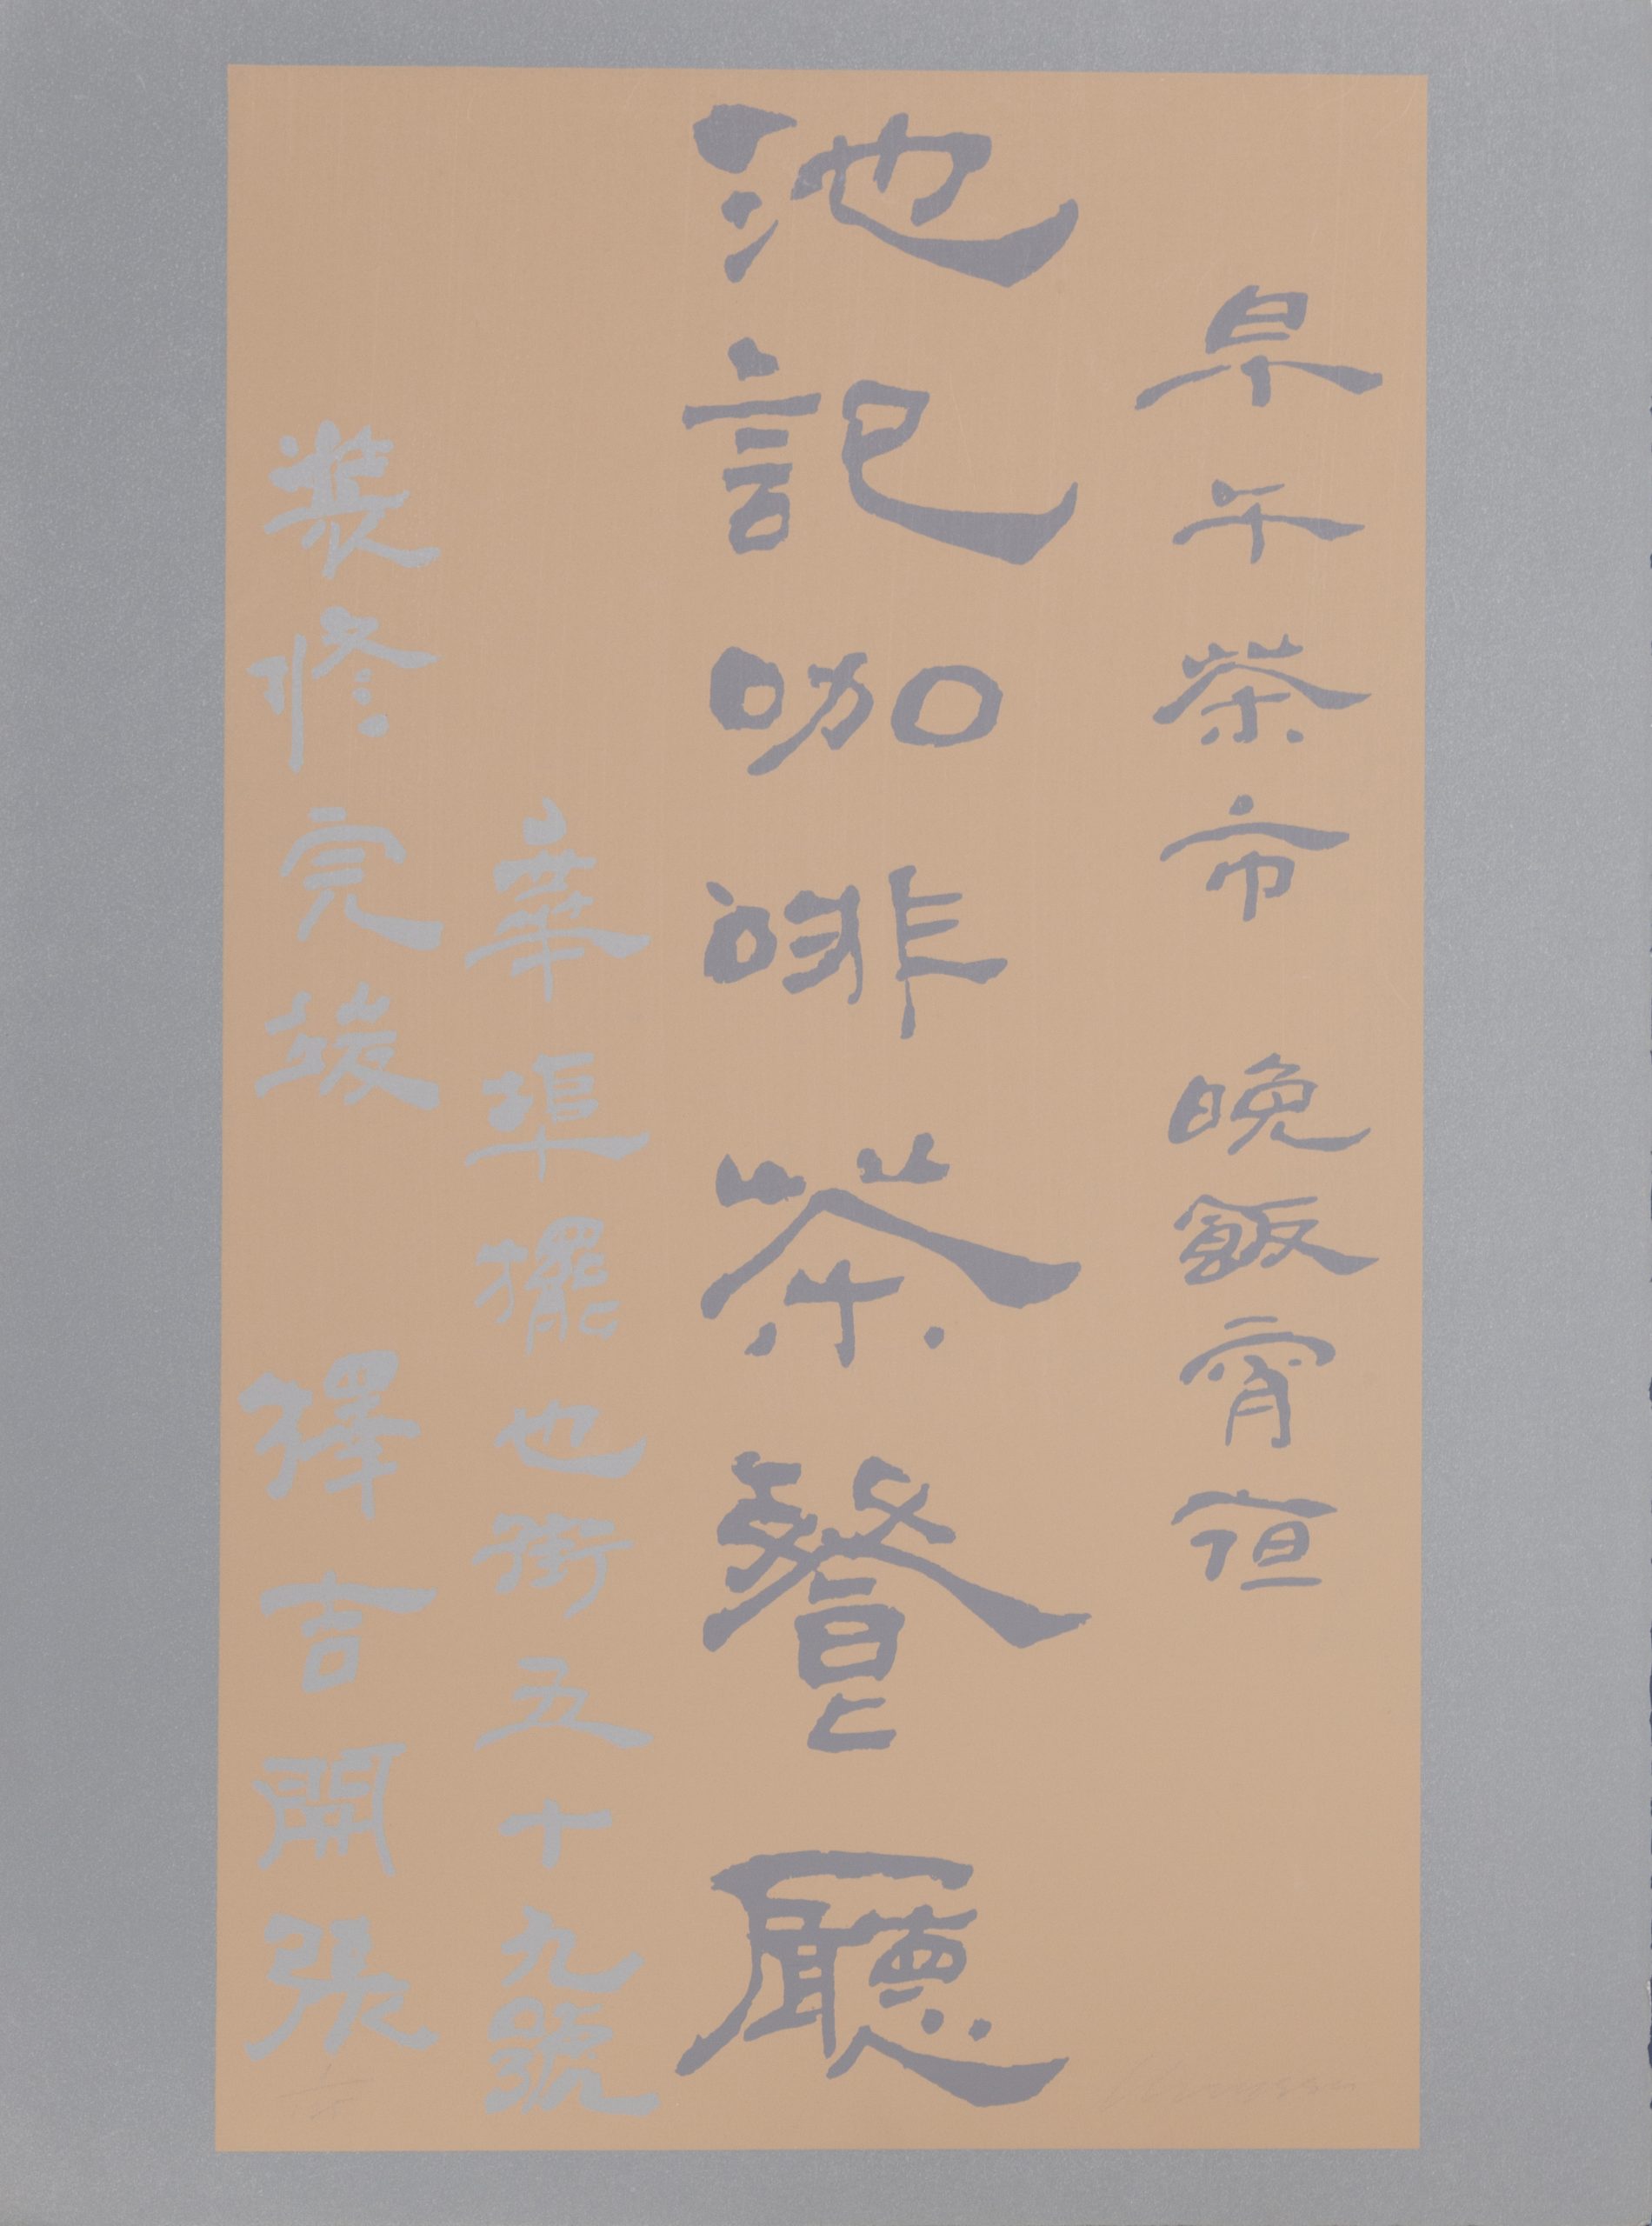 早午茶市 晚飯宵夜
池記咖啡茶餐廳
華埠擺也街五十九號
裝修完竣 擇吉開張